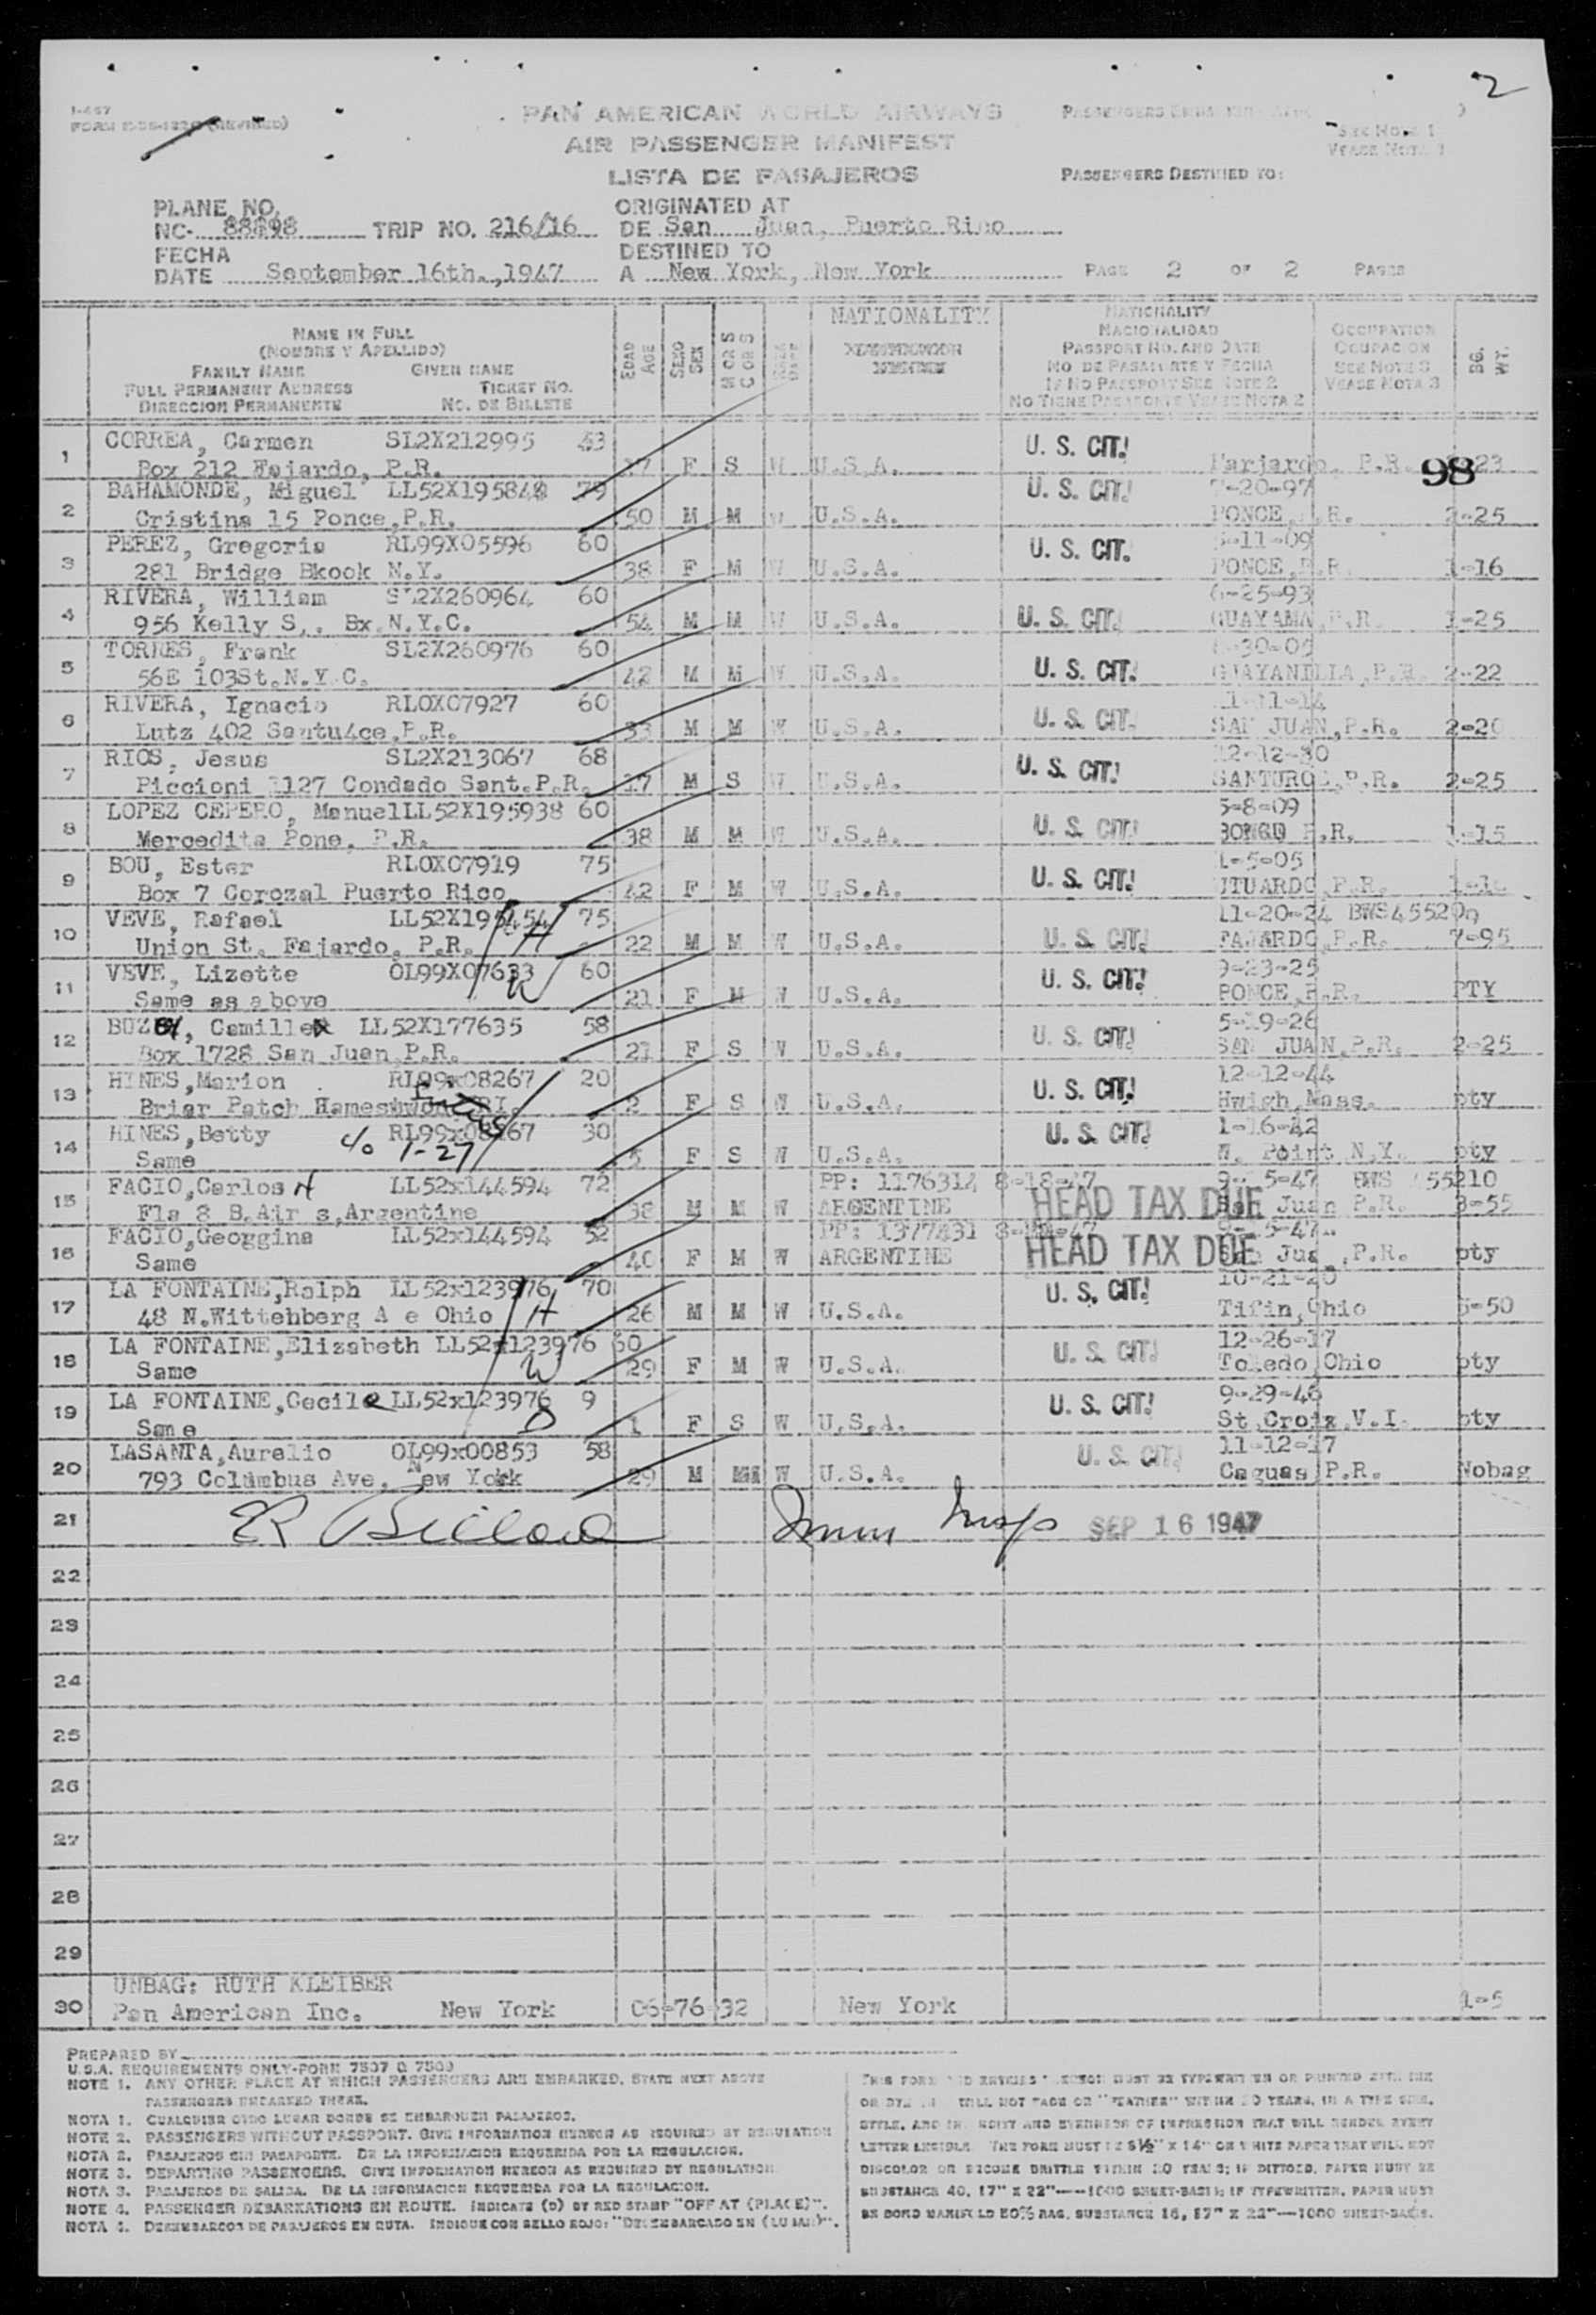 2
I-467
PAN AMERICAN WORLD AIRWAYS
AIR PASSENGER MANIFEST
LISTA DE PASAJEROS
SEE NOTE 1
VEASE NOTA 1
PASSENGERS DESTINED TO:
PLANE NO. ORIGINATED AT
NC- TRIP NO. 216/16 DE San Juan, Puerto Rico
FECHA DESTINED TO
DATE September 16th.,1947 A New York, New York PAGE 2 OF 2 PAGES
NAME IN FULL
(NOMBRE Y APELLIDO)
FAMILY NAME GIVEN NAME
FULL PERMANENT ADDRESS TICKET NO.
DIRECCION PERMANENTE NO. DE BILLETE
EDAD AGE
SEXO SEX
M OR S
C OR S
NATIONALITY
NATIONALITY
NACIONALIDAD
PASSPORT NO. AND DATE
NO. DE PASAPORTE Y FECHA
IF NO PASSPORT SEE NOTE 2
NO TIENE PASAPORTE VEASE NOTA 2
OCCUPATION
OCUPACION
SEE NOTE 3
VEASE NOTA 3
BG. WT.
1 CORREA, Carmen SL2X212995 43 U. S. CIT!
Box 212 Fajardo, P.R. 17 F S W U.S.A. P.R. 98
2 BAHAMONDE, Miguel LL52X195848 79 U. S. CIT! 7-20-97
Cristina 15 Ponce,P.R. 50 M M W U.S.A. PONCE, P.R. 2-25
3 PEREZ, Gregoria RL99X05596 60 U. S. CIT. 5-11-09
281 Bridge Bkook N.Y. 38 F M W U.S.A. PONCE,P.R. 1-16
4 RIVERA, William SL2X260964 60 U. S. CIT! 6-25-93
956 Kelly S,. Bx.N.Y.C. 54 M M W U.S.A. GUAYAMA,P.R. 1-25
5 TORRES, Frank SL2X260976 60 U. S. CIT!
56E 103St.N.Y.C. 42 M M W U.S.A. GUAYANILLA,P.R. 2-22
6 RIVERA, Ignacio RLOX07927 60 U. S. CIT. 11-11-14
Lutz 402 Santu4ce,P.R. 33 M M W U.S.A. SAN JUAN,P.R. 2-20
7 RIOS, Jesus SL2X213067 68 U. S. CIT! 12-12-30
Piccioni 1127 Condado Sant.P.R. 17 M S W U.S.A. SANTURCE,P.R. 2-25
8 LOPEZ CEPERO, ManuelLL52X195938 60 U. S. CIT! 5-8-09
Mercedita Pone, P.R. 38 M M W U.S.A. P.R. 1-15
9 BOU, Ester RLOX07919 75 U. S. CIT! 1-5-05
Box 7 Corozal Puerto Rico 42 F M W U.S.A. UTUARDO,P.R.
10 VEVE, Rafael LL52X195454 H 75 U. S. CIT! 11-20-24
Union St. Fajardo, P.R. 22 M M W U.S.A. FAJARDO,P.R. 7-95
11 VEVE, Lizette OL99X07633 W 60 U. S. CIT! 9-23-25
Same as above 21 F M W U.S.A. PONCE,P.R. PTY
12 Camille LL52X177635 58 U. S. CIT! 5-19-26
Box 1728 San Juan,P.R. 21 F S W U.S.A. SAN JUAN,P.R. 2-25
13 HINES,Marion RL99x08267 20 U. S. CIT! 12-12-44
Briar Patch 2 F S W U.S.A. Mass. pty
14 HINES,Betty c/o 1-27 RL99x08267 30 U. S. CIT! 1-16-42
Same 5 F S W U.S.A. W. Point N.Y. pty
15 FACIO,Carlos H LL52x144594 72 PP: 1176314 8-18-47 HEAD TAX DUE 9- 5-47
Fla 8 B.Air s,Argentine 38 M M W ARGENTINE San Juan P.R. 3-55
16 FACIO,Georgina LL52x144594 52 PP: 1377431 HEAD TAX DUE
Same 40 F M W ARGENTINE San Jua ,P.R. pty
17 LA FONTAINE,Ralph LL52x123976 H 70 U. S. CIT! 10-21-20
48 N.Wittenberg A e Ohio 26 M M W U.S.A. Tifin,Ohio 5-50
18 LA FONTAINE,Elizabeth LL52x123976 W 60 U. S. CIT! 12-26-17
Same 29 F M W U.S.A. Toledo,Ohio pty
19 LA FONTAINE,Cecile LL52x123976 D 9 U. S. CIT! 9-29-46
Same 1 F S W U.S.A. St.Croix,V.I. pty
20 LASANTA,Aurelio OL99x00853 58 U. S. CIT! 11-12-17
793 Columbus Ave. New York 29 M W U.S.A. Caguas,P.R. Nobag
21 SEP 16 1947
22
23
24
25
26
27
28
29
30 UNBAG: RUTH KLEIBER
Pan American Inc. New York 06-76-32 New York 1-5
PREPARED BY
U.S.A. REQUIREMENTS ONLY-FORM 7507 & 7509
NOTE 1. ANY OTHER PLACE AT WHICH PASSENGERS ARE EMBARKED, STATE NEXT ABOVE
PASSENGERS EMBARKED THERE.
NOTA 1. CUALQUIER OTRO LUGAR DONDE SE EMBARQUEN PASAJEROS.
NOTE 2. PASSENGERS WITHOUT PASSPORT. GIVE INFORMATION HEREON AS REQUIRED BY REGULATION
NOTA 2. PASAJEROS SIN PASAPORTE. DE LA INFORMACION REQUERIDA POR LA REGULACION.
NOTE 3. DEPARTING PASSENGERS. GIVE INFORMATION HEREON AS REQUIRED BY REGULATION
NOTA 3. PASAJEROS DE SALIDA. DE LA INFORMACION REQUERIDA POR LA REGULACION.
NOTE 4. PASSENGER DEBARKATIONS EN ROUTE. INDICATE (D) BY RED STAMP "OFF AT (PLACE)".
NOTA 4. DESEMBARCOS DE PASAJEROS EN RUTA. INDIQUE CON SELLO ROJO: "DESEMBARCADO EN (LUGAR)".
THIS FORM AND ENTRIES HEREON MUST BE TYPEWRITTEN OR PRINTED WITH INK
OR DYE WILL NOT FADE OR "FEATHER" WITHIN 20 YEARS, IN A TYPE SIZE,
STYLE, AND IN DENSITY AND EVENNESS OF IMPRESSION THAT WILL RENDER EVERY
LETTER LEGIBLE. THE FORM MUST BE 8½" x 14" ON WHITE PAPER THAT WILL NOT
DISCOLOR OR BECOME BRITTLE WITHIN 20 YEARS; IF DITTOED, PAPER MUST BE
SUBSTANCE 40, 17" X 22"----1000 SHEET-BASIS; IF TYPEWRITTEN, PAPER MUST
BE BOND MANIFOLD 50% RAG, SUBSTANCE 16, 17" X 22"---1000 SHEET-BASIS.